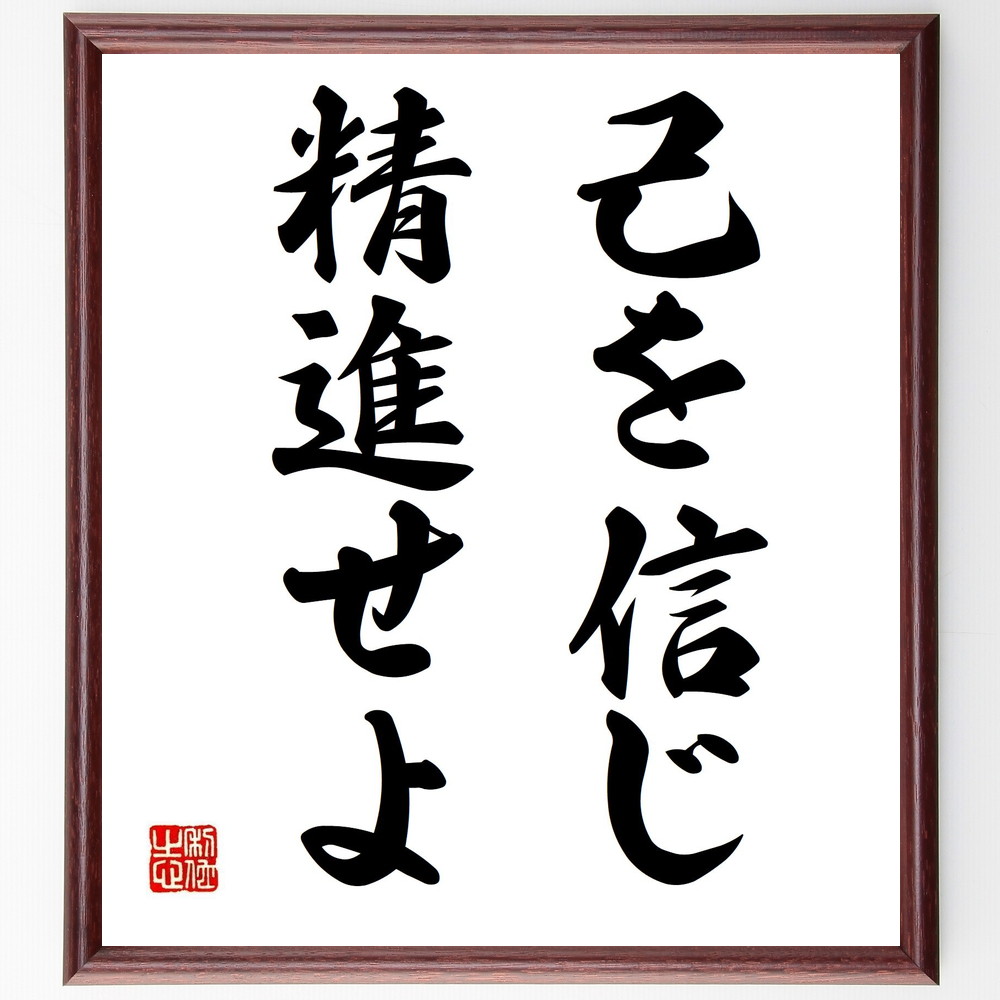 己を信じ
精進せよ